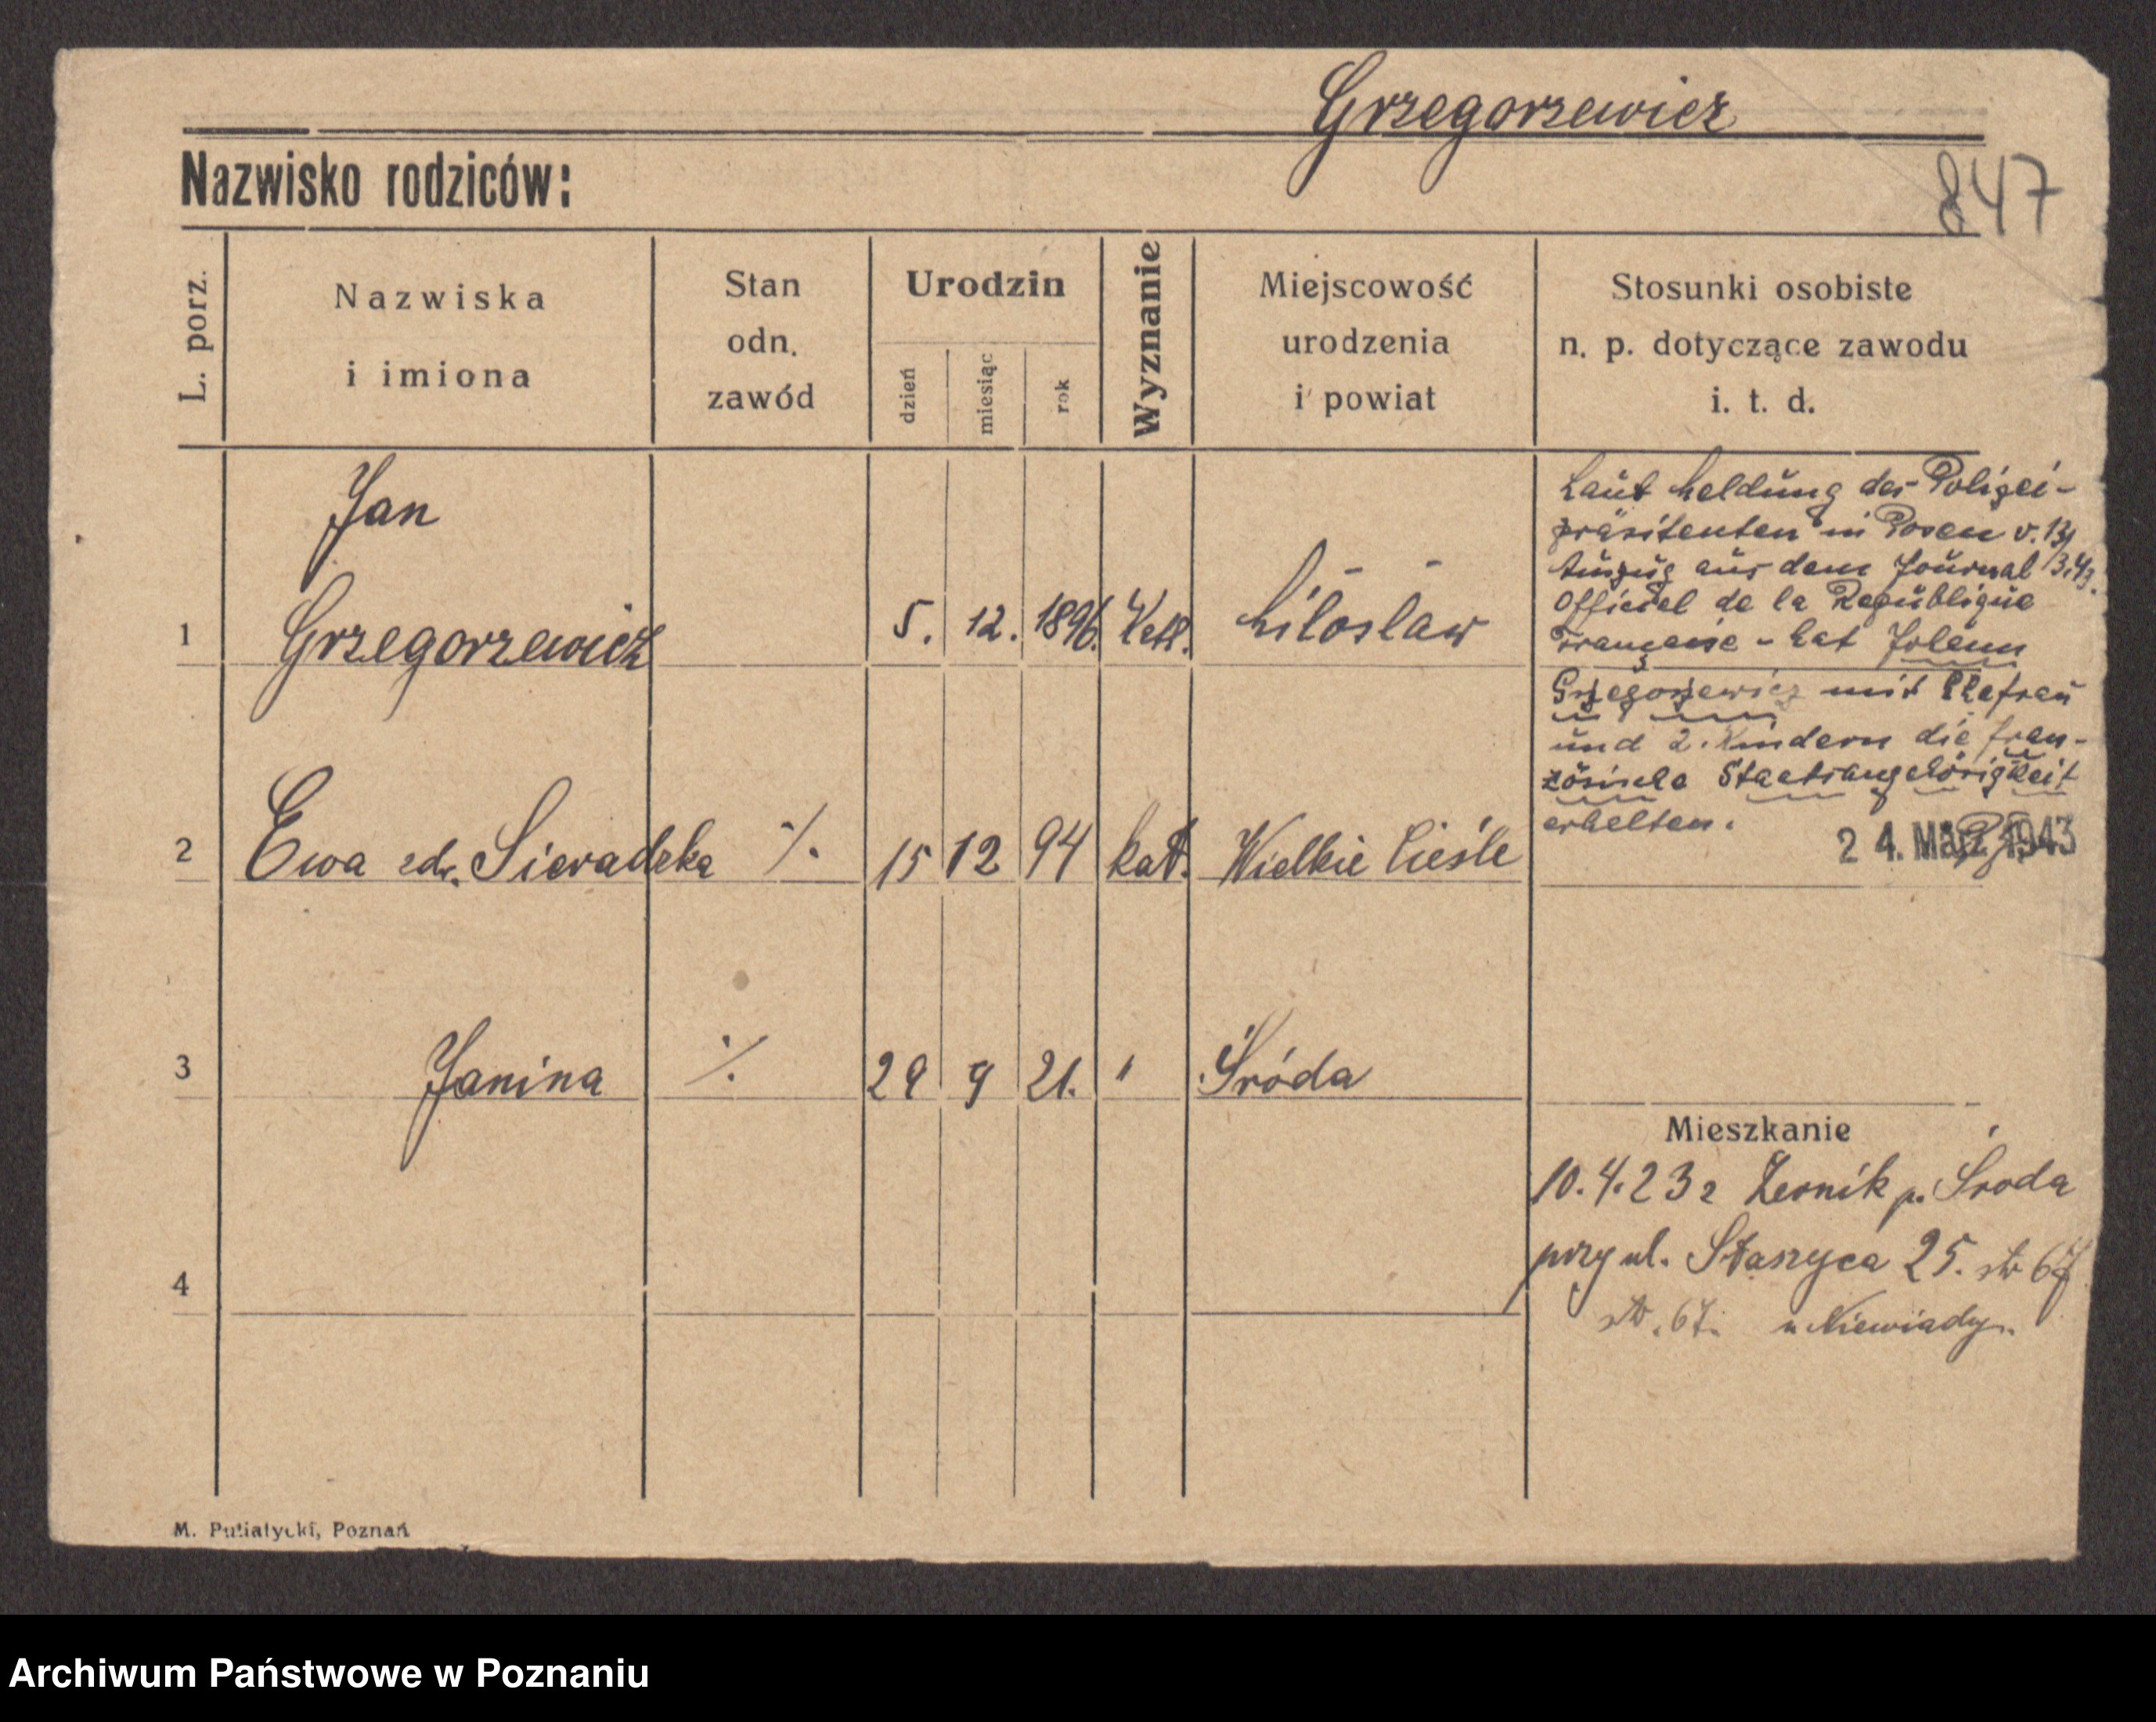 Grzegorzewicz
Nazwisko rodziców:
847
L. porz.
Nazwiska
i imiona
Stan
odn.
zawód
Urodzin
dzień
miesiąc
rok
Wyznanie
Miejscowość
urodzenia
i powiat
Stosunki osobiste
n. p. dotyczące zawodu
i. t. d.
1
Jan
Grzegorzewicz
5. 12. 1896. Kath.
Miloslaw
Laut Meldung des Polizei-
präsitenten in Posen v. 13/
Auszug aus dem Journal 3.43.
Officiel de la Republique
Francaise - hat Johann
Grzegorzewicz mit Ehefrau
und 2. Kindern die fran-
zösische Staatsangehörigkeit
erhalten.
24. März 1943
2
Ewa zdr. Sieradzka ·/·
15 12 94 kat.
Wielkie Cieśle
3
Janina ·/·
29 9 21. "
Środa
Mieszkanie
10.4.23 z Żernik p. Środa
przy ul. Staszyca 25. str 67
str. 67. u Niewiady.
4
M. Putiatycki, Poznań
Archiwum Państwowe w Poznaniu